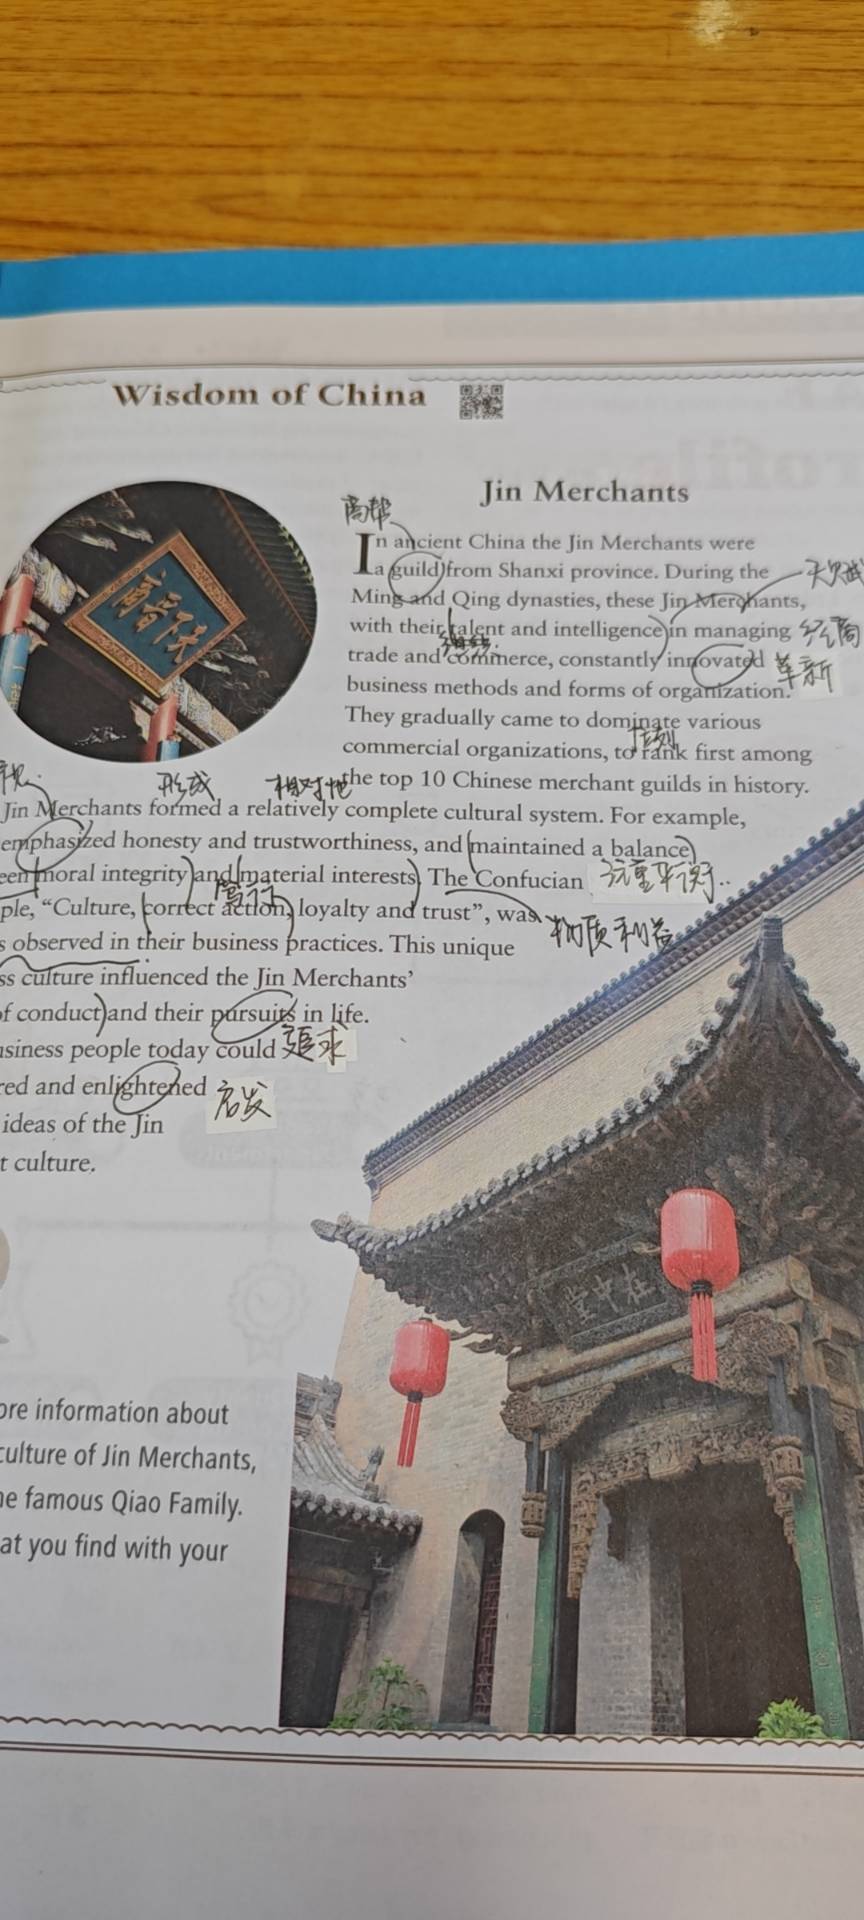 Wisdom of China
Jin Merchants
商帮
In ancient China the Jin Merchants were
a guild from Shanxi province. During the
Ming and Qing dynasties, these Jin Merchants,
with their talent and intelligence in managing 经商
trade and commerce, constantly innovated 革新
business methods and forms of organization.
They gradually came to dominate various
commercial organizations, to rank first among
形成 相对地 the top 10 Chinese merchant guilds in history.
Jin Merchants formed a relatively complete cultural system. For example,
emphasized honesty and trustworthiness, and maintained a balance
een moral integrity and material interests. The Confucian
ple, “Culture, correct action, loyalty and trust”, was 物质利益
s observed in their business practices. This unique
ss culture influenced the Jin Merchants’
of conduct and their pursuits in life.
usiness people today could 追求
red and enlightened 启发
ideas of the Jin
t culture.
天下晋商
在中堂
ore information about
culture of Jin Merchants,
he famous Qiao Family.
at you find with your